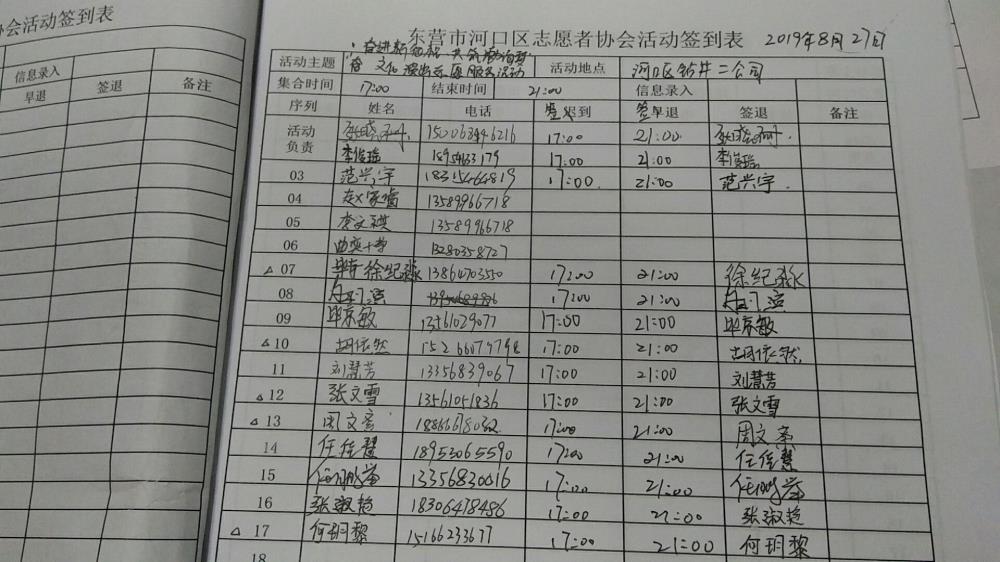 会活动签到表
信息录入
早退 签退 备注
东营市河口区志愿者协会活动签到表 2019年8月27日
活动主题 奋进新征程 共筑
文化 服务活动 活动地点 河口区钻井二公司
集合时间 17:00 结束时间 21:00 信息录入
序列 姓名 电话 签迟到 签早退 签退 备注
活动负责 15006346216 17:00 21:00
李俊瑶 18954663179 17:00 21:00 李俊瑶
03 范兴宇 18315464819 17:00 21:00 范兴宇
04 赵家蕾 13589966718
05 李文祺 13589966718
06 13280358727
△ 07 徐纪淼 13864703550 17:00 21:00 徐纪淼
08 17:00 21:00
09 毕京敏 13561029077 17:00 21:00 毕京敏
△ 10 胡依然 15266079798 17:00 21:00 胡依然
11 刘慧芳 13356839067 17:00 21:00 刘慧芳
△ 12 张文雪 13561051836 17:00 21:00 张文雪
△ 13 周文 17:00 21:00 周文
14 任佳慧 18953065590 17:00 21:00 任佳慧
15 任鹏 13356830016 17:00 21:00 任鹏
16 张淑艳 18306478486 17:00 21:00 张淑艳
△ 17 何玥黎 15166233677 17:00 21:00 何玥黎
18